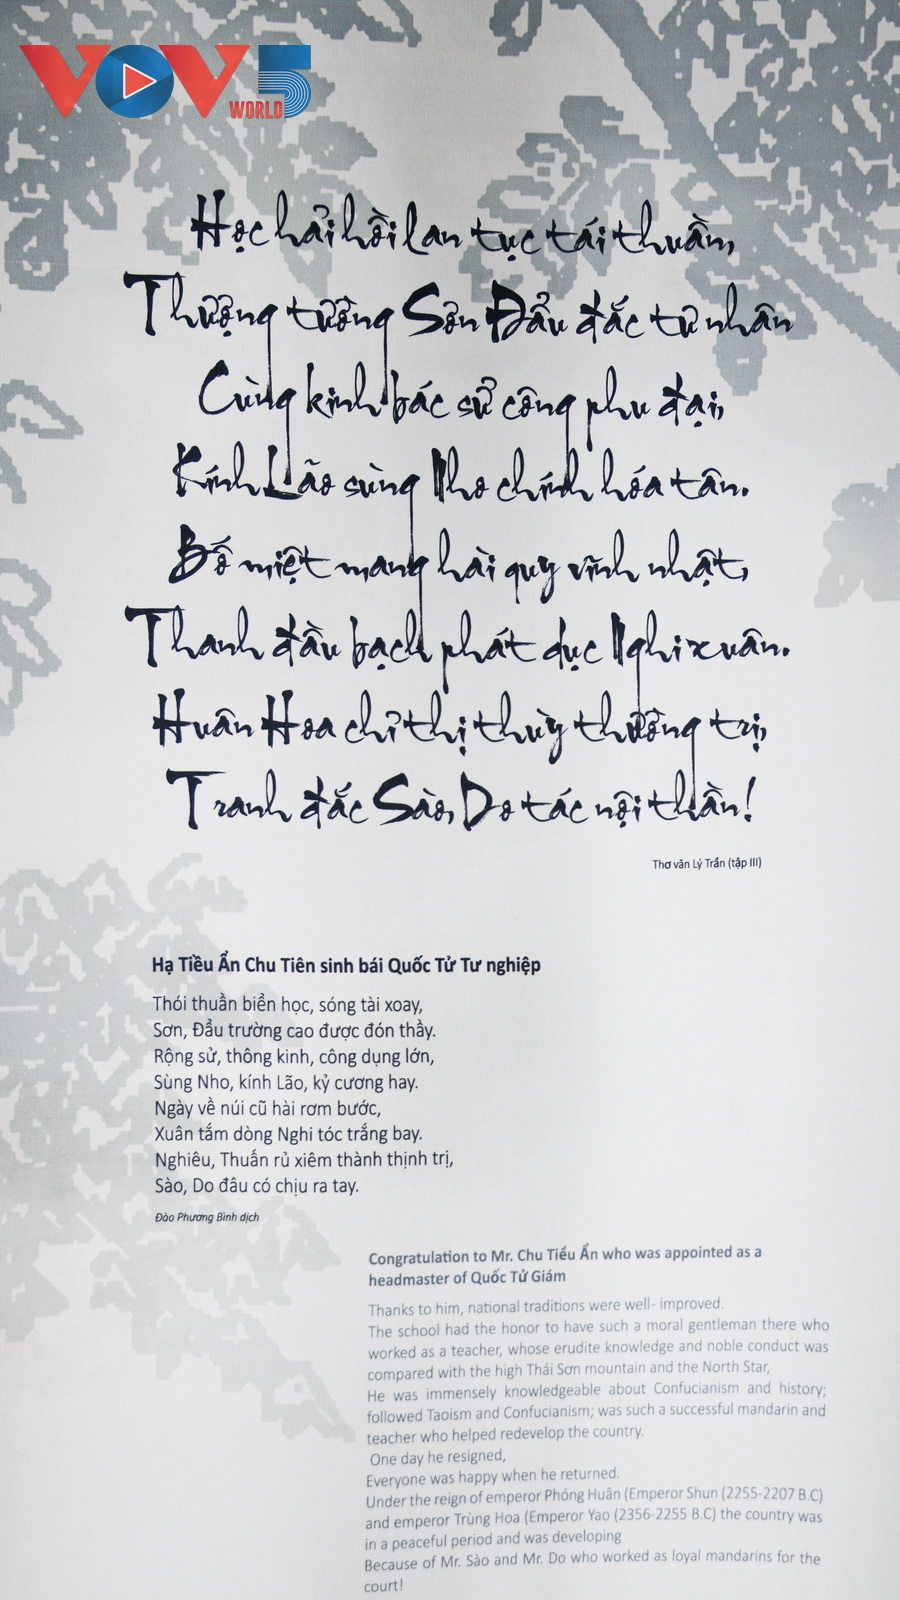 VOV5
WORLD
Học hải hồi lan tục tái thuần,
Thượng tường Sơn Đẩu đắc tư nhân
Cùng kinh bác sử công phu đại,
Kính Lão sùng Nho chính hóa tân.
Bố miệt mang hài quy vĩnh nhật,
Thanh đầu bạch phát dục Nghi xuân.
Huân Hoa chỉ thị thùy thường trị,
Tranh đắc Sào, Do tác nội thần!
Thơ văn Lý Trần (tập III)
Hạ Tiều Ẩn Chu Tiên sinh bái Quốc Tử Tư nghiệp
Thói thuần biển học, sóng tài xoay,
Sơn, Đẩu trường cao được đón thầy.
Rộng sử, thông kinh, công dụng lớn,
Sùng Nho, kính Lão, kỷ cương hay.
Ngày về núi cũ hài rơm bước,
Xuân tắm dòng Nghi tóc trắng bay.
Nghiêu, Thuấn rủ xiêm thành thịnh trị,
Sào, Do đâu có chịu ra tay.
Đào Phương Bình dịch
Congratulation to Mr. Chu Tiều Ẩn who was appointed as a
headmaster of Quốc Tử Giám
Thanks to him, national traditions were well- improved.
The school had the honor to have such a moral gentleman there who
worked as a teacher, whose erudite knowledge and noble conduct was
compared with the high Thái Sơn mountain and the North Star,
He was immensely knowledgeable about Confucianism and history;
followed Taoism and Confucianism; was such a successful mandarin and
teacher who helped redevelop the country.
One day he resigned,
Everyone was happy when he returned.
Under the reign of emperor Phóng Huân (Emperor Shun (2255-2207 B.C)
and emperor Trùng Hoa (Emperor Yao (2356-2255 B.C) the country was
in a peaceful period and was developing
Because of Mr. Sào and Mr. Do who worked as loyal mandarins for the
court!